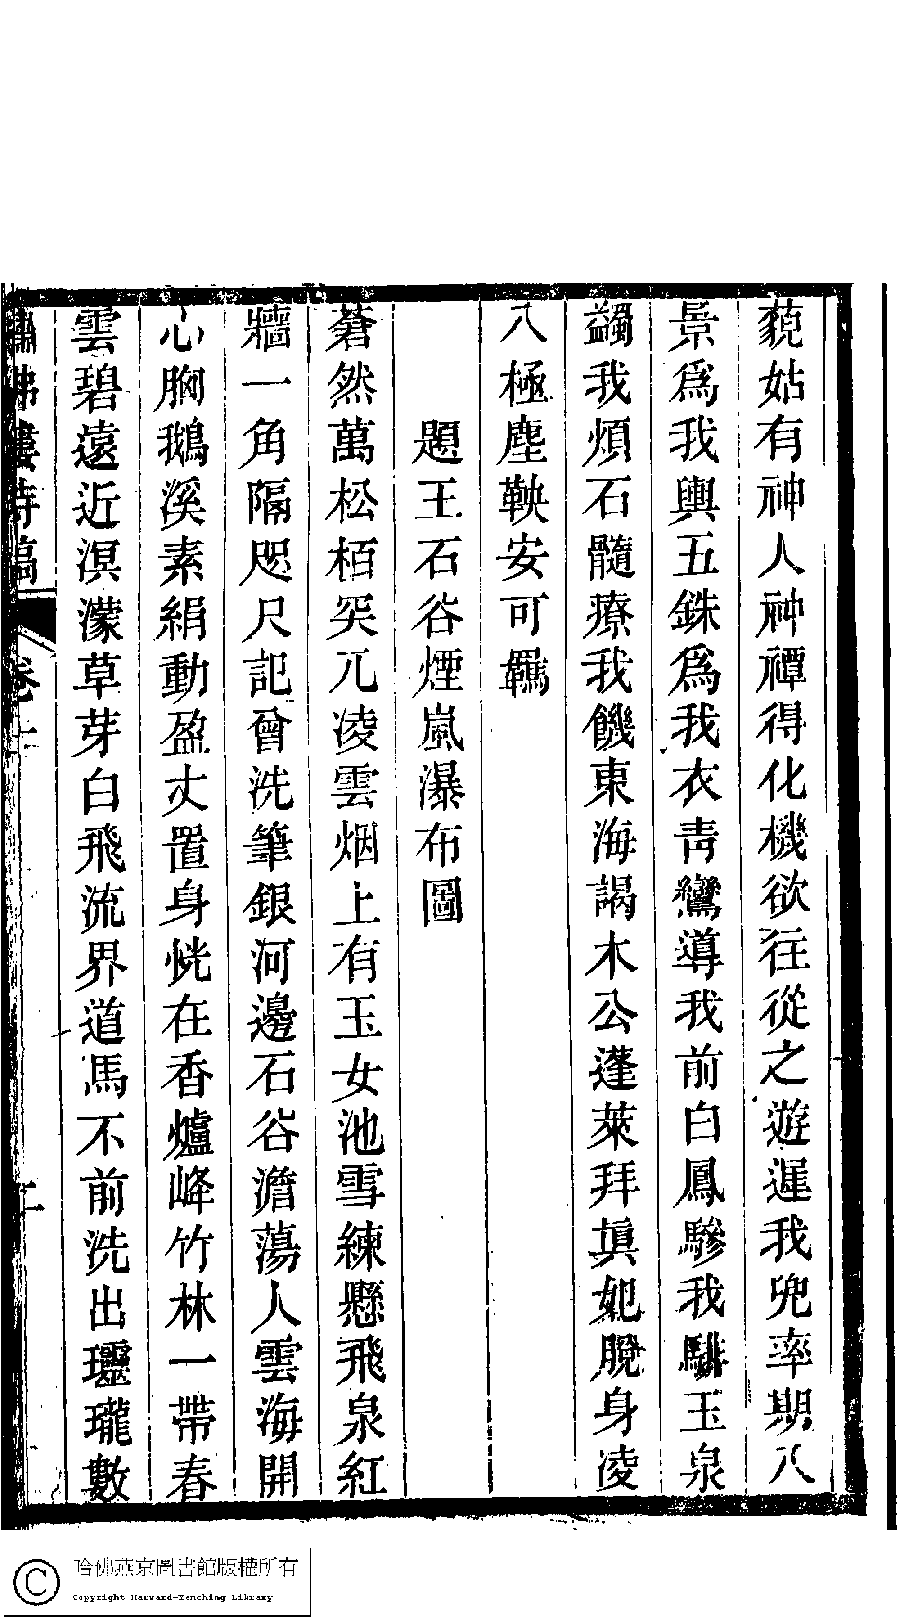 藐姑有神人神禫得化機欲往從之遊遲我兜率期八
景爲我輿五銖爲我衣靑鸞導我前白鳳驂我騑玉泉
蠲我煩石髓療我饑東海謁木公蓬萊拜眞妃脫身凌
八極塵鞅安可羈
題王石谷煙嵐瀑布圖
蒼然萬松栢突兀凌雲烟上有玉女池雪練懸飛泉紅
牆一角隔咫尺記曾洗筆銀河邊石谷澹蕩人雲海開
心胸鵝溪素絹動盈丈置身恍在香爐峰竹林一帶春
雲碧遠近溟濛草芽白飛流界道馬不前洗出瓏瓏數
樓詩稿
卷二
哈佛燕京圖書館版權所有
Copyright Harvard-Yenching Library